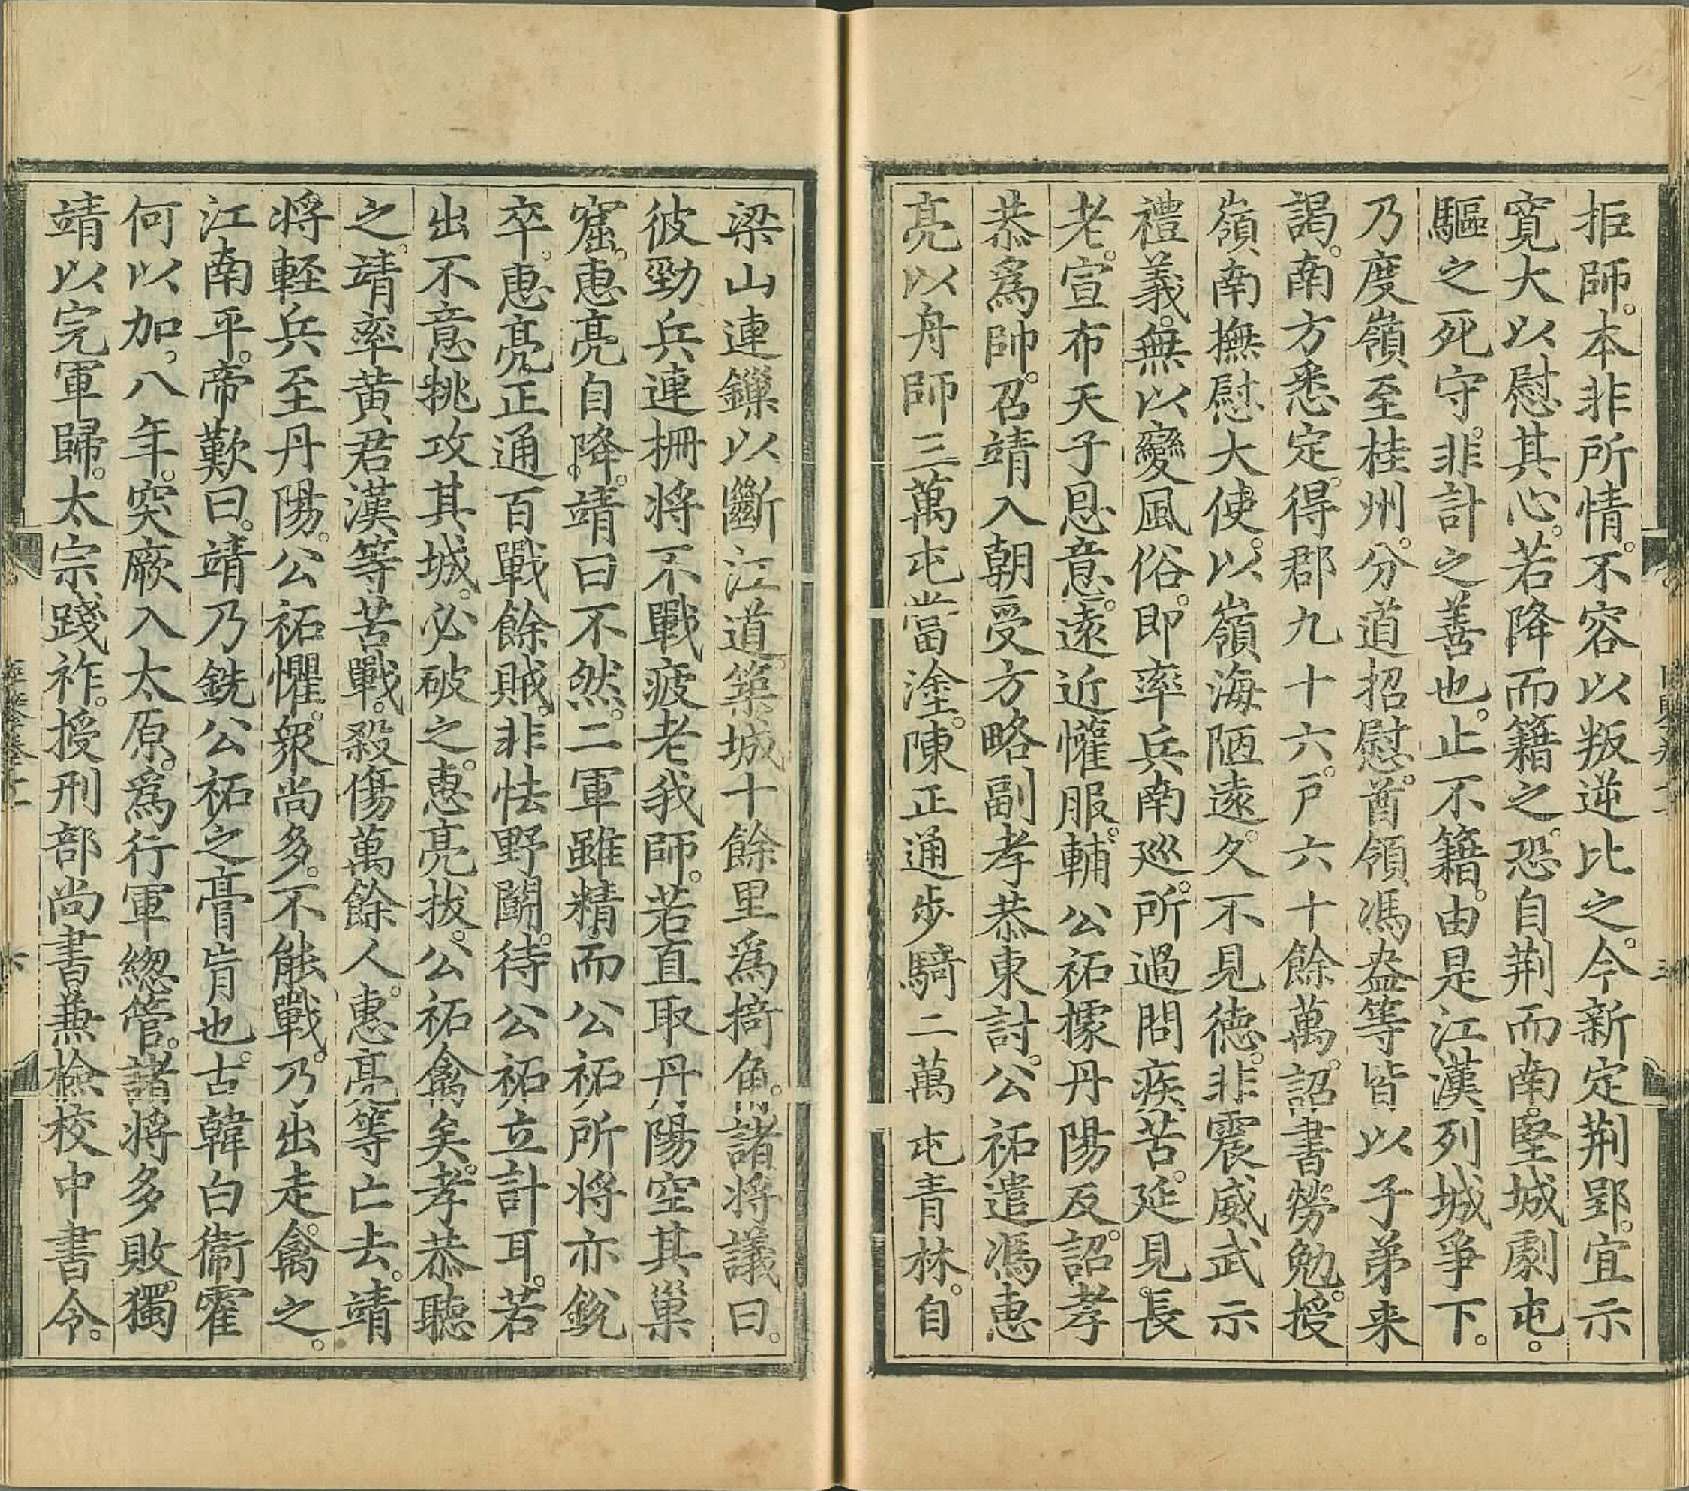 拒師。本非所情。不容以叛逆比之。今新定荆郢。宜示
寛大以慰其心。若降而籍之。恐自荆而南。堅城劇屯。
驅之死守。非計之善也。止不籍。由是江漢列城爭下。
乃度嶺至桂州。分道招慰。酋領馮盎等皆以子弟来
謁。南方悉定。得郡九十六。戸六十餘萬。詔書勞勉。授
嶺南撫慰大使。以嶺海陋遠。久不見德。非震威武示
禮義。無以變風俗。即率兵南巡。所過問疾苦。延見長
老。宣布天子恩意。遠近懽服。輔公祏據丹陽反。詔孝
恭爲帥。召靖入朝受方略。副孝恭東討。公祏遣馮惠
亮以舟師三萬屯當塗。陳正通歩騎二萬屯青林。自
梁山連鏁以斷江道。築城十餘里爲掎角。諸将議曰。
彼勁兵連柵。将不戰疲老我師。若直取丹陽空其巢
窟。惠亮自降。靖曰不然。二軍雖精而公祏所将亦鋭
卒。惠亮正通百戰餘賊。非怯野鬭。待公祏立計耳。若
出不意挑攻其城。必破之。惠亮拔。公祏禽矣。孝恭聽
之。靖率黄君漢等苦戰。殺傷萬餘人。惠亮等亡去。靖
将軽兵至丹陽。公祏懼。衆尚多。不能戰。乃出走。禽之。
江南平。帝歎曰。靖乃銑公祏之膏肓也。古韓白衛霍
何以加。八年。突厥入太原。爲行軍總管。諸将多敗。獨
靖以完軍歸。太宗踐祚。授刑部尚書兼檢校中書令。